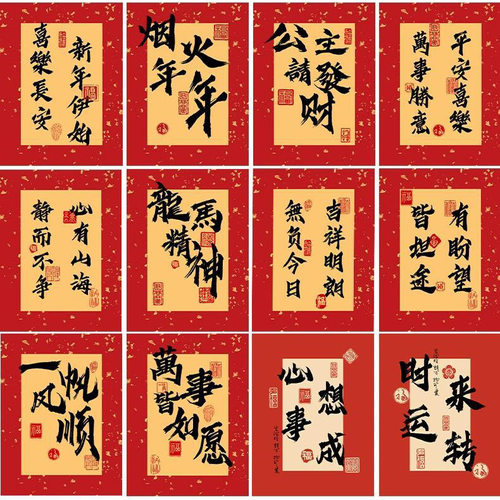 新年伊始
喜樂長安
烟火
年年
公主
請發财
平安喜樂
萬事勝意
心有山海
静而不争
龍馬
精神
吉祥明朗
無負今日
有盼望
皆坦途
一帆
风顺
萬事
皆如愿
心想
事成
时来
运转